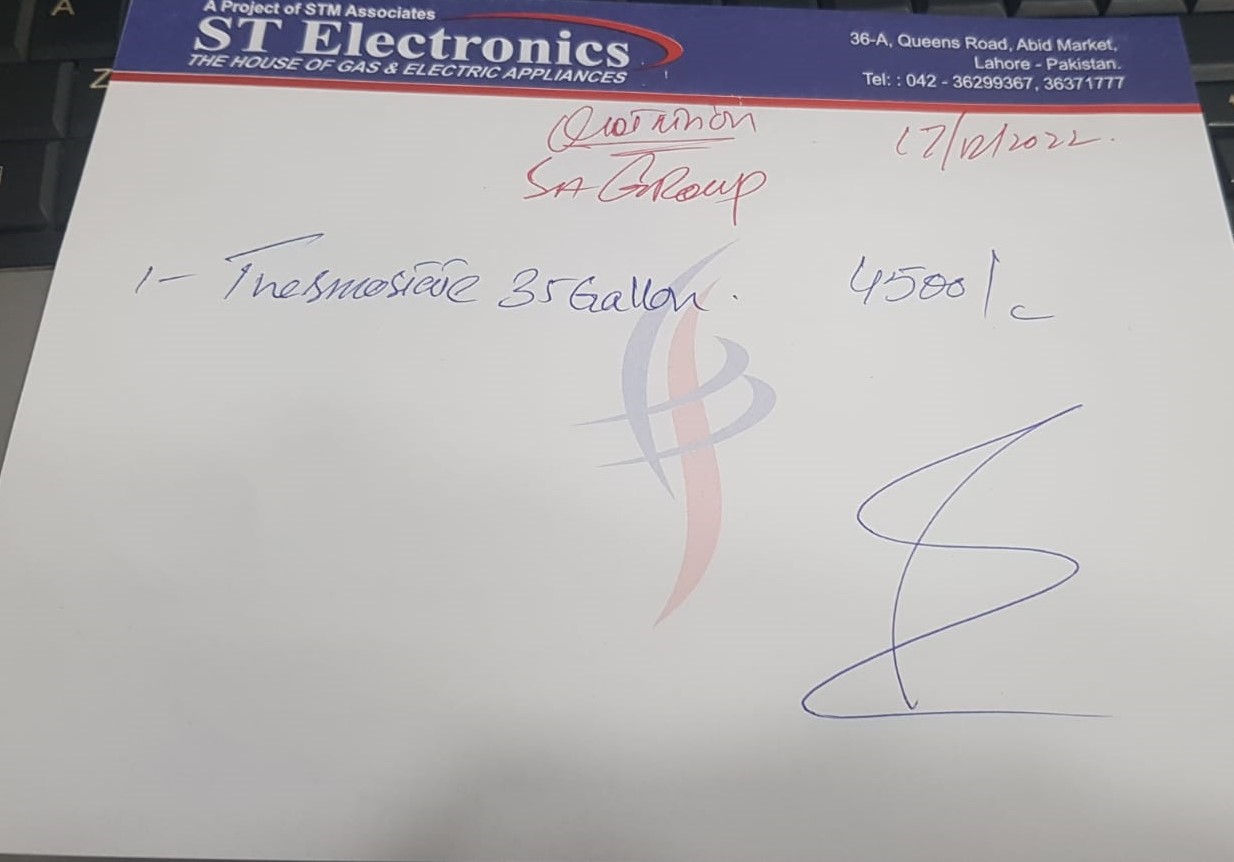 A Project of STM Associates
ST Electronics
THE HOUSE OF GAS & ELECTRIC APPLIANCES
36-A, Queens Road, Abid Market,
Lahore - Pakistan.
Tel: : 042 - 36299367, 36371777
Quotation
17/12/2022.
SA GROUP
1- 35 Gallon. 4500/
A
Z